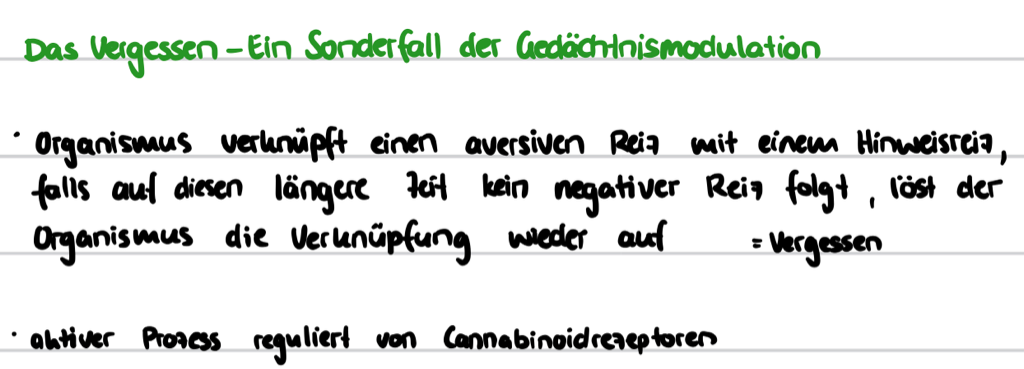 Das Vergessen – Ein Sonderfall der Gedächtnismodulation
· Organismus verknüpft einen aversiven Reiz mit einem Hinweisreiz,
falls auf diesen längere Zeit kein negativer Reiz folgt, löst der
Organismus die Verknüpfung wieder auf = Vergessen
· aktiver Prozess reguliert von Cannabinoidrezeptoren